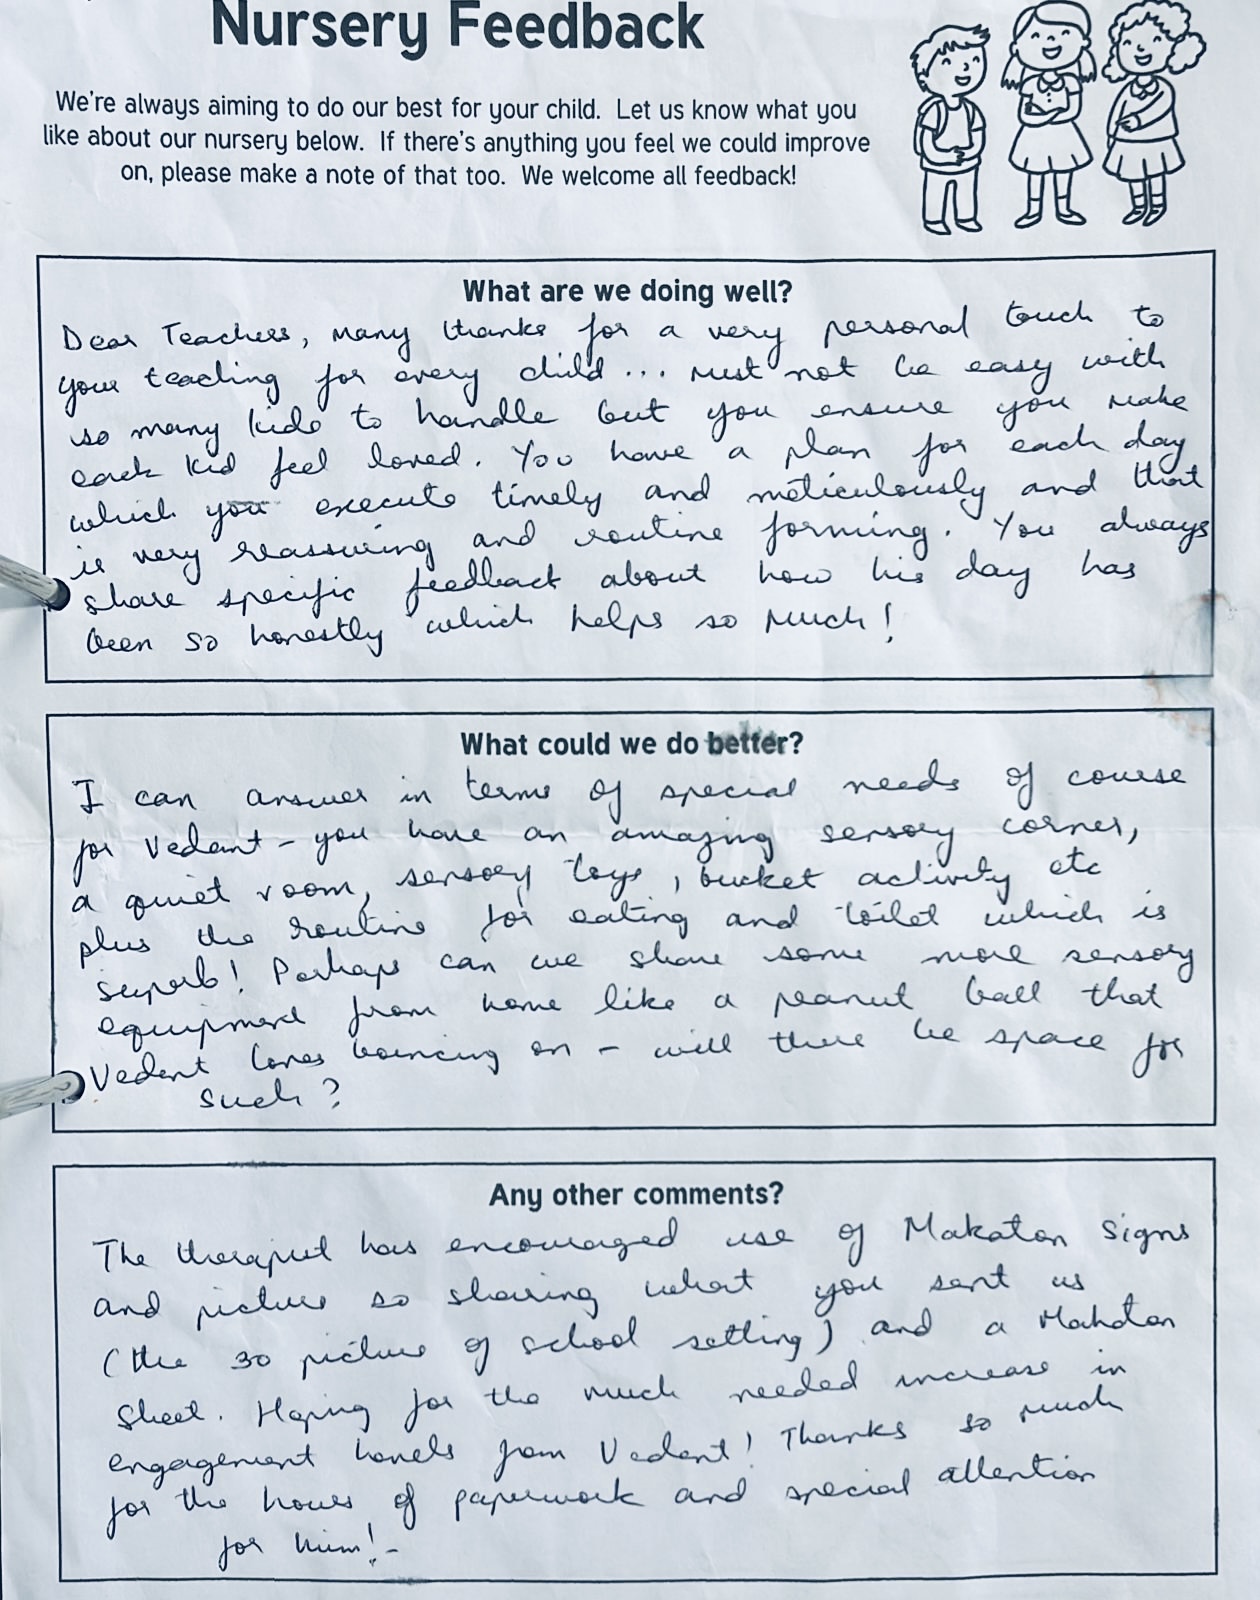 Nursery Feedback
We're always aiming to do our best for your child. Let us know what you
like about our nursery below. If there's anything you feel we could improve
on, please make a note of that too. We welcome all feedback!
What are we doing well?
Dear Teachers, many thanks for a very personal touch to
your teaching for every child... must not be easy with
so many kids to handle but you ensure you make
each kid feel loved. You have a plan for each day
which you execute timely and meticulously and that
is very reassuring and routine forming. You always
share specific feedback about how his day has
been so honestly which helps so much!
What could we do better?
I can answer in terms of special needs of course
for Vedant - you have an amazing sensory corner,
a quiet room, sensory toys, bucket activity etc
plus the routine for eating and toilet which is
superb! Perhaps can we share some more sensory
equipment from home like a peanut ball that
Vedant loves bouncing on - will there be space for
such?
Any other comments?
The therapist has encouraged use of Makaton signs
and picture so sharing what you sent us
(the 30 picture of school setting) and a Makaton
sheet. Hoping for the much needed increase in
engagement levels from Vedant! Thanks so much
for the hours of paperwork and special attention
for him! -